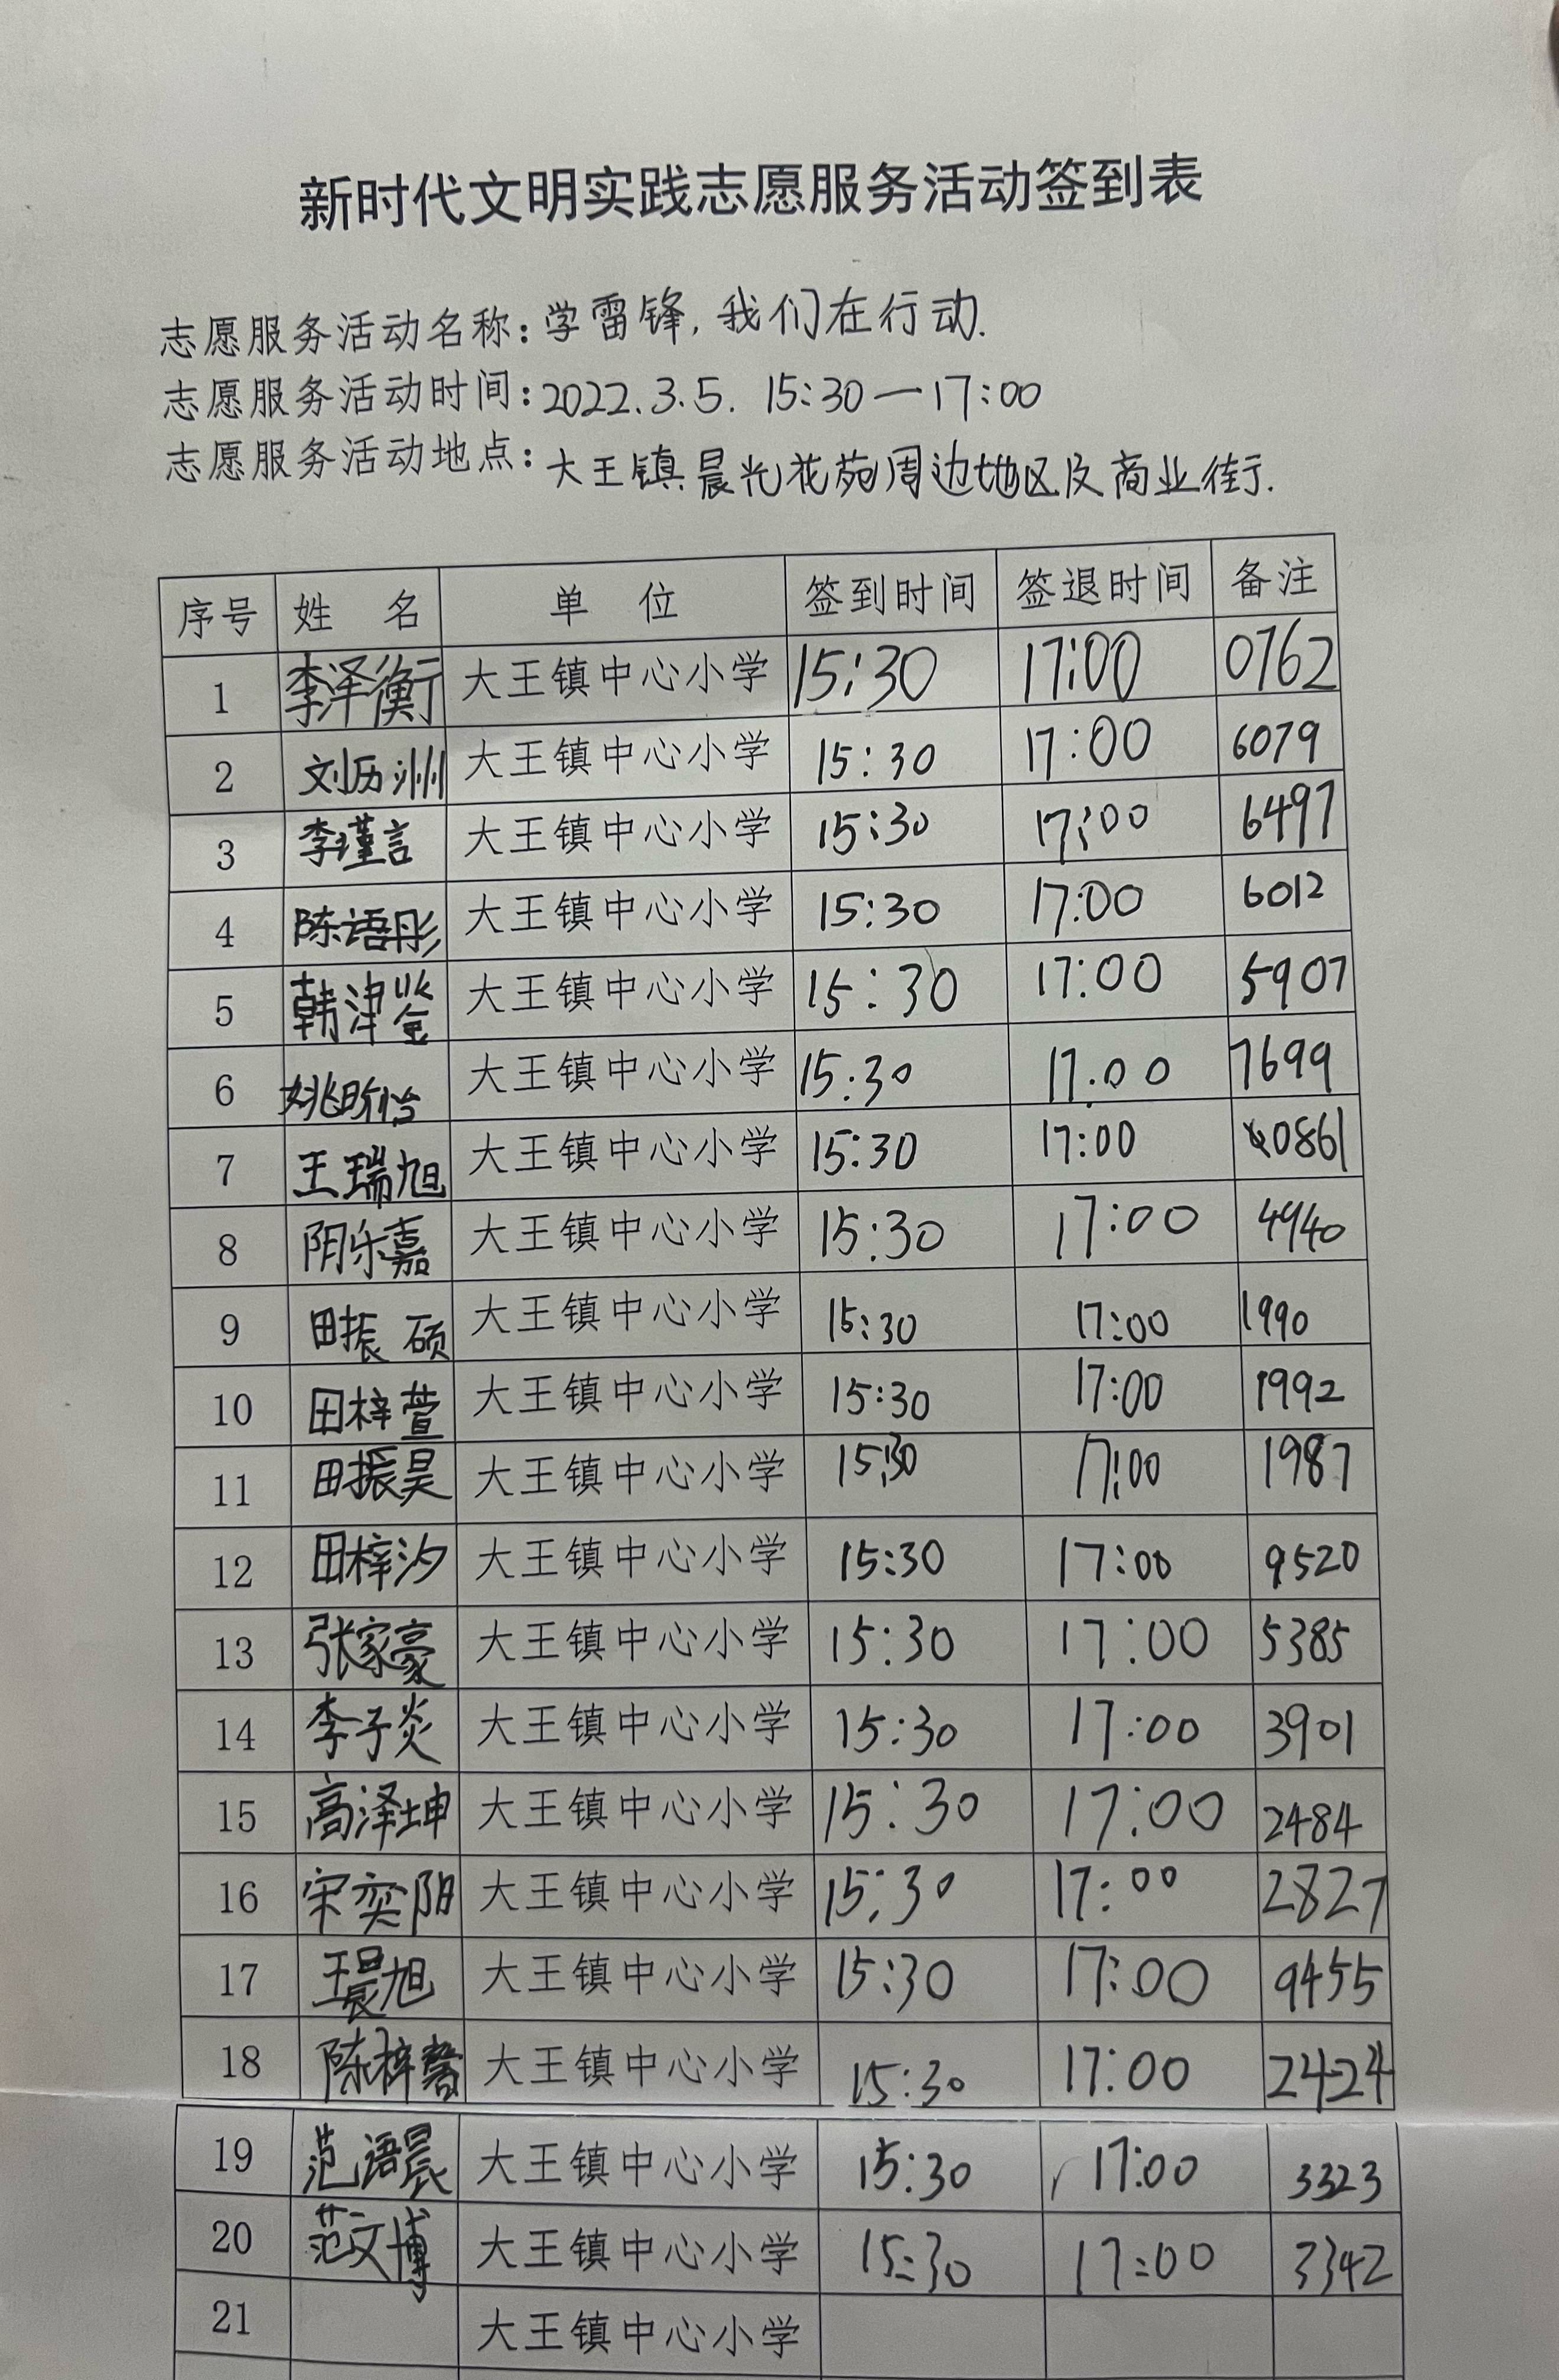 新时代文明实践志愿服务活动签到表
志愿服务活动名称:学雷锋,我们在行动.
志愿服务活动时间:2022.3.5. 15:30—17:00
志愿服务活动地点:大王镇晨光花苑周边地区及商业街.
序号 姓 名 单 位 签到时间 签退时间 备注
1 李泽衡 大王镇中心小学 15:30 17:00 0762
2 刘历洲 大王镇中心小学 15:30 17:00 6079
3 李瑾言 大王镇中心小学 15:30 17:00 6497
4 陈语彤 大王镇中心小学 15:30 17:00 6012
5 韩津鉴 大王镇中心小学 15:30 17:00 5907
6 姚昕怡 大王镇中心小学 15:30 17:00 7699
7 王瑞旭 大王镇中心小学 15:30 17:00 0861
8 阴乐嘉 大王镇中心小学 15:30 17:00 4940
9 田振硕 大王镇中心小学 15:30 17:00 1990
10 田梓萱 大王镇中心小学 15:30 17:00 1992
11 田振昊 大王镇中心小学 15:30 17:00 1987
12 田梓汐 大王镇中心小学 15:30 17:00 9520
13 张家豪 大王镇中心小学 15:30 17:00 5385
14 李子炎 大王镇中心小学 15:30 17:00 3901
15 高泽坤 大王镇中心小学 15:30 17:00 2484
16 宋奕阴 大王镇中心小学 15:30 17:00 2827
17 王晨旭 大王镇中心小学 15:30 17:00 9455
18 陈梓馨 大王镇中心小学 15:30 17:00 2424
19 范语晨 大王镇中心小学 15:30 17:00 3323
20 范文博 大王镇中心小学 15:30 17:00 3342
21 大王镇中心小学